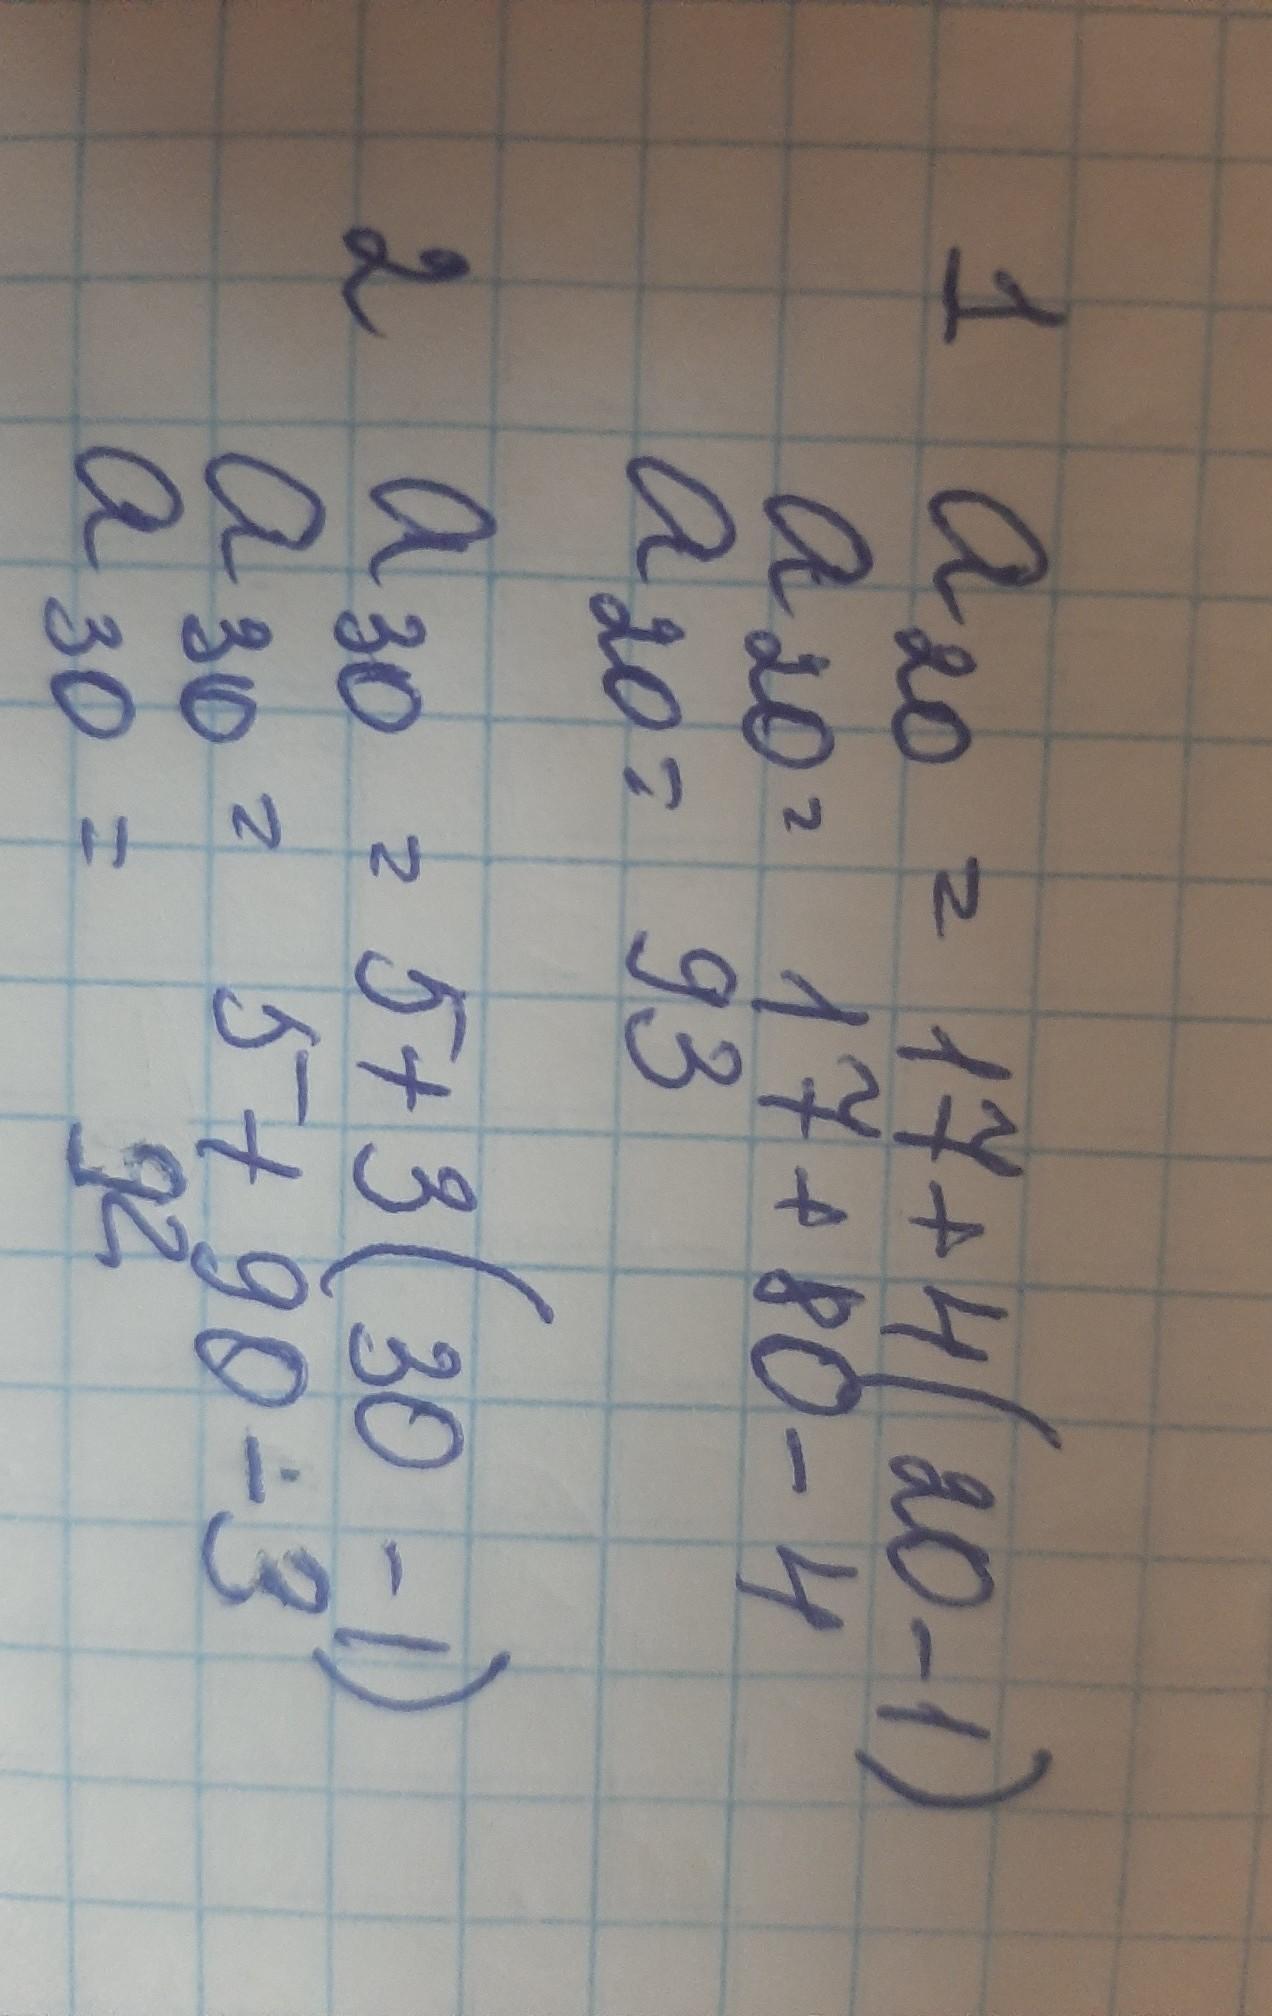 1 a20 = 17+4(20-1)
a20= 17+80-4
a20= 93
2 a30 = 5+3(30-1)
a30= 5+90-3
a30= 92